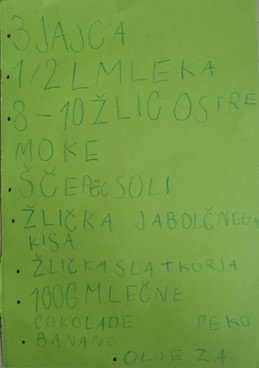 • 3 JAJCA
• 1/2 L MLEKA
• 8-10 ŽLIC OSTRE
MOKE
• ŠČEPEC SOLI
• ŽLIČKA JABOLČNEGA
KISA
• ŽLIČKA SLATKORJA
• 100G MLEČNE
ČOKOLADE
• BANANE
• OLJE ZA
PEKO